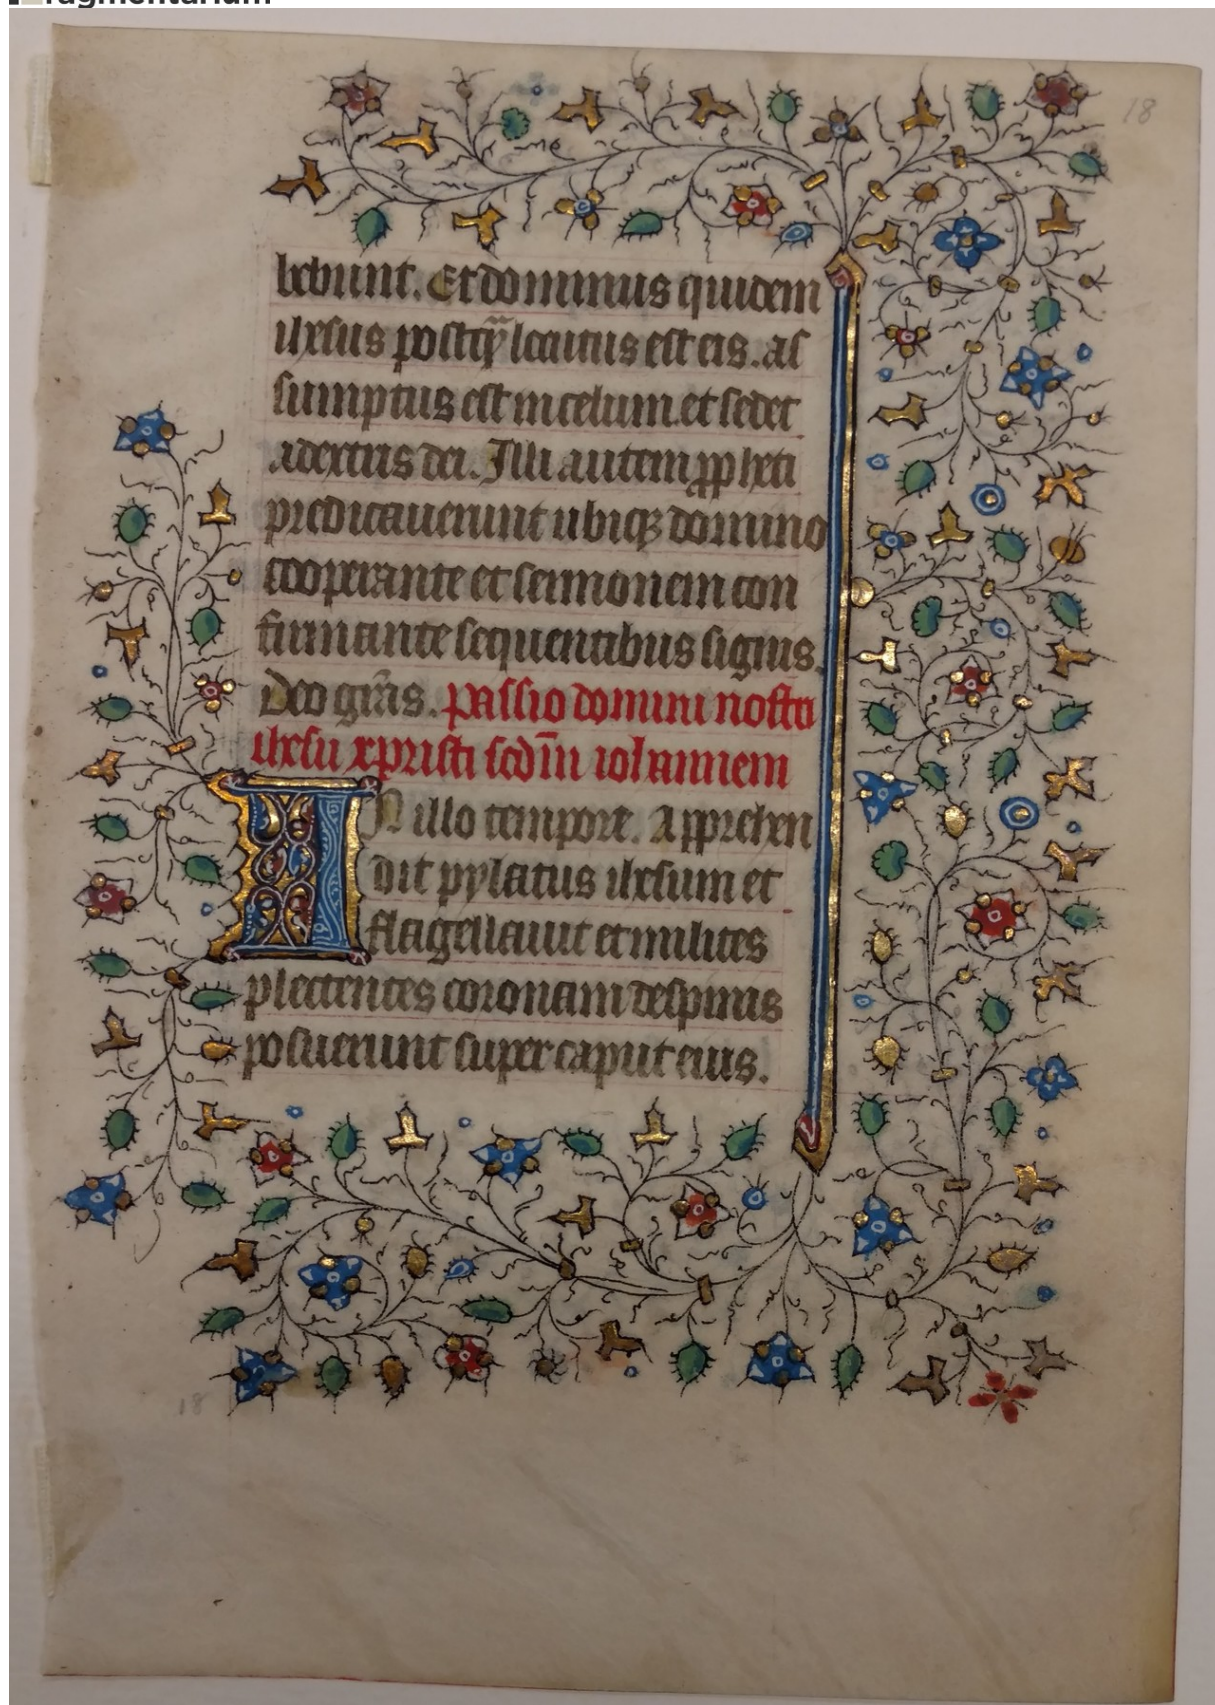 ragmentarium
18
bebunt. Et dominus quidem
ihesus postq̃ locutus est eis. as
sumptus est in celum et sedet
a dextris dei. Illi autem ꝓphecti
predicauerunt ubiqꝫ domino
cooperante et sermonem con
firmante sequentibus signis.
Deo gr̃as. Passio domini nostri
ihesu xpristi scd̃m iohannem
IN illo tempore. Apprehen
dit pylatus ihesum et
flagellauit et milites
plectentes coronam de spinis
posuerunt super caput eius.
18